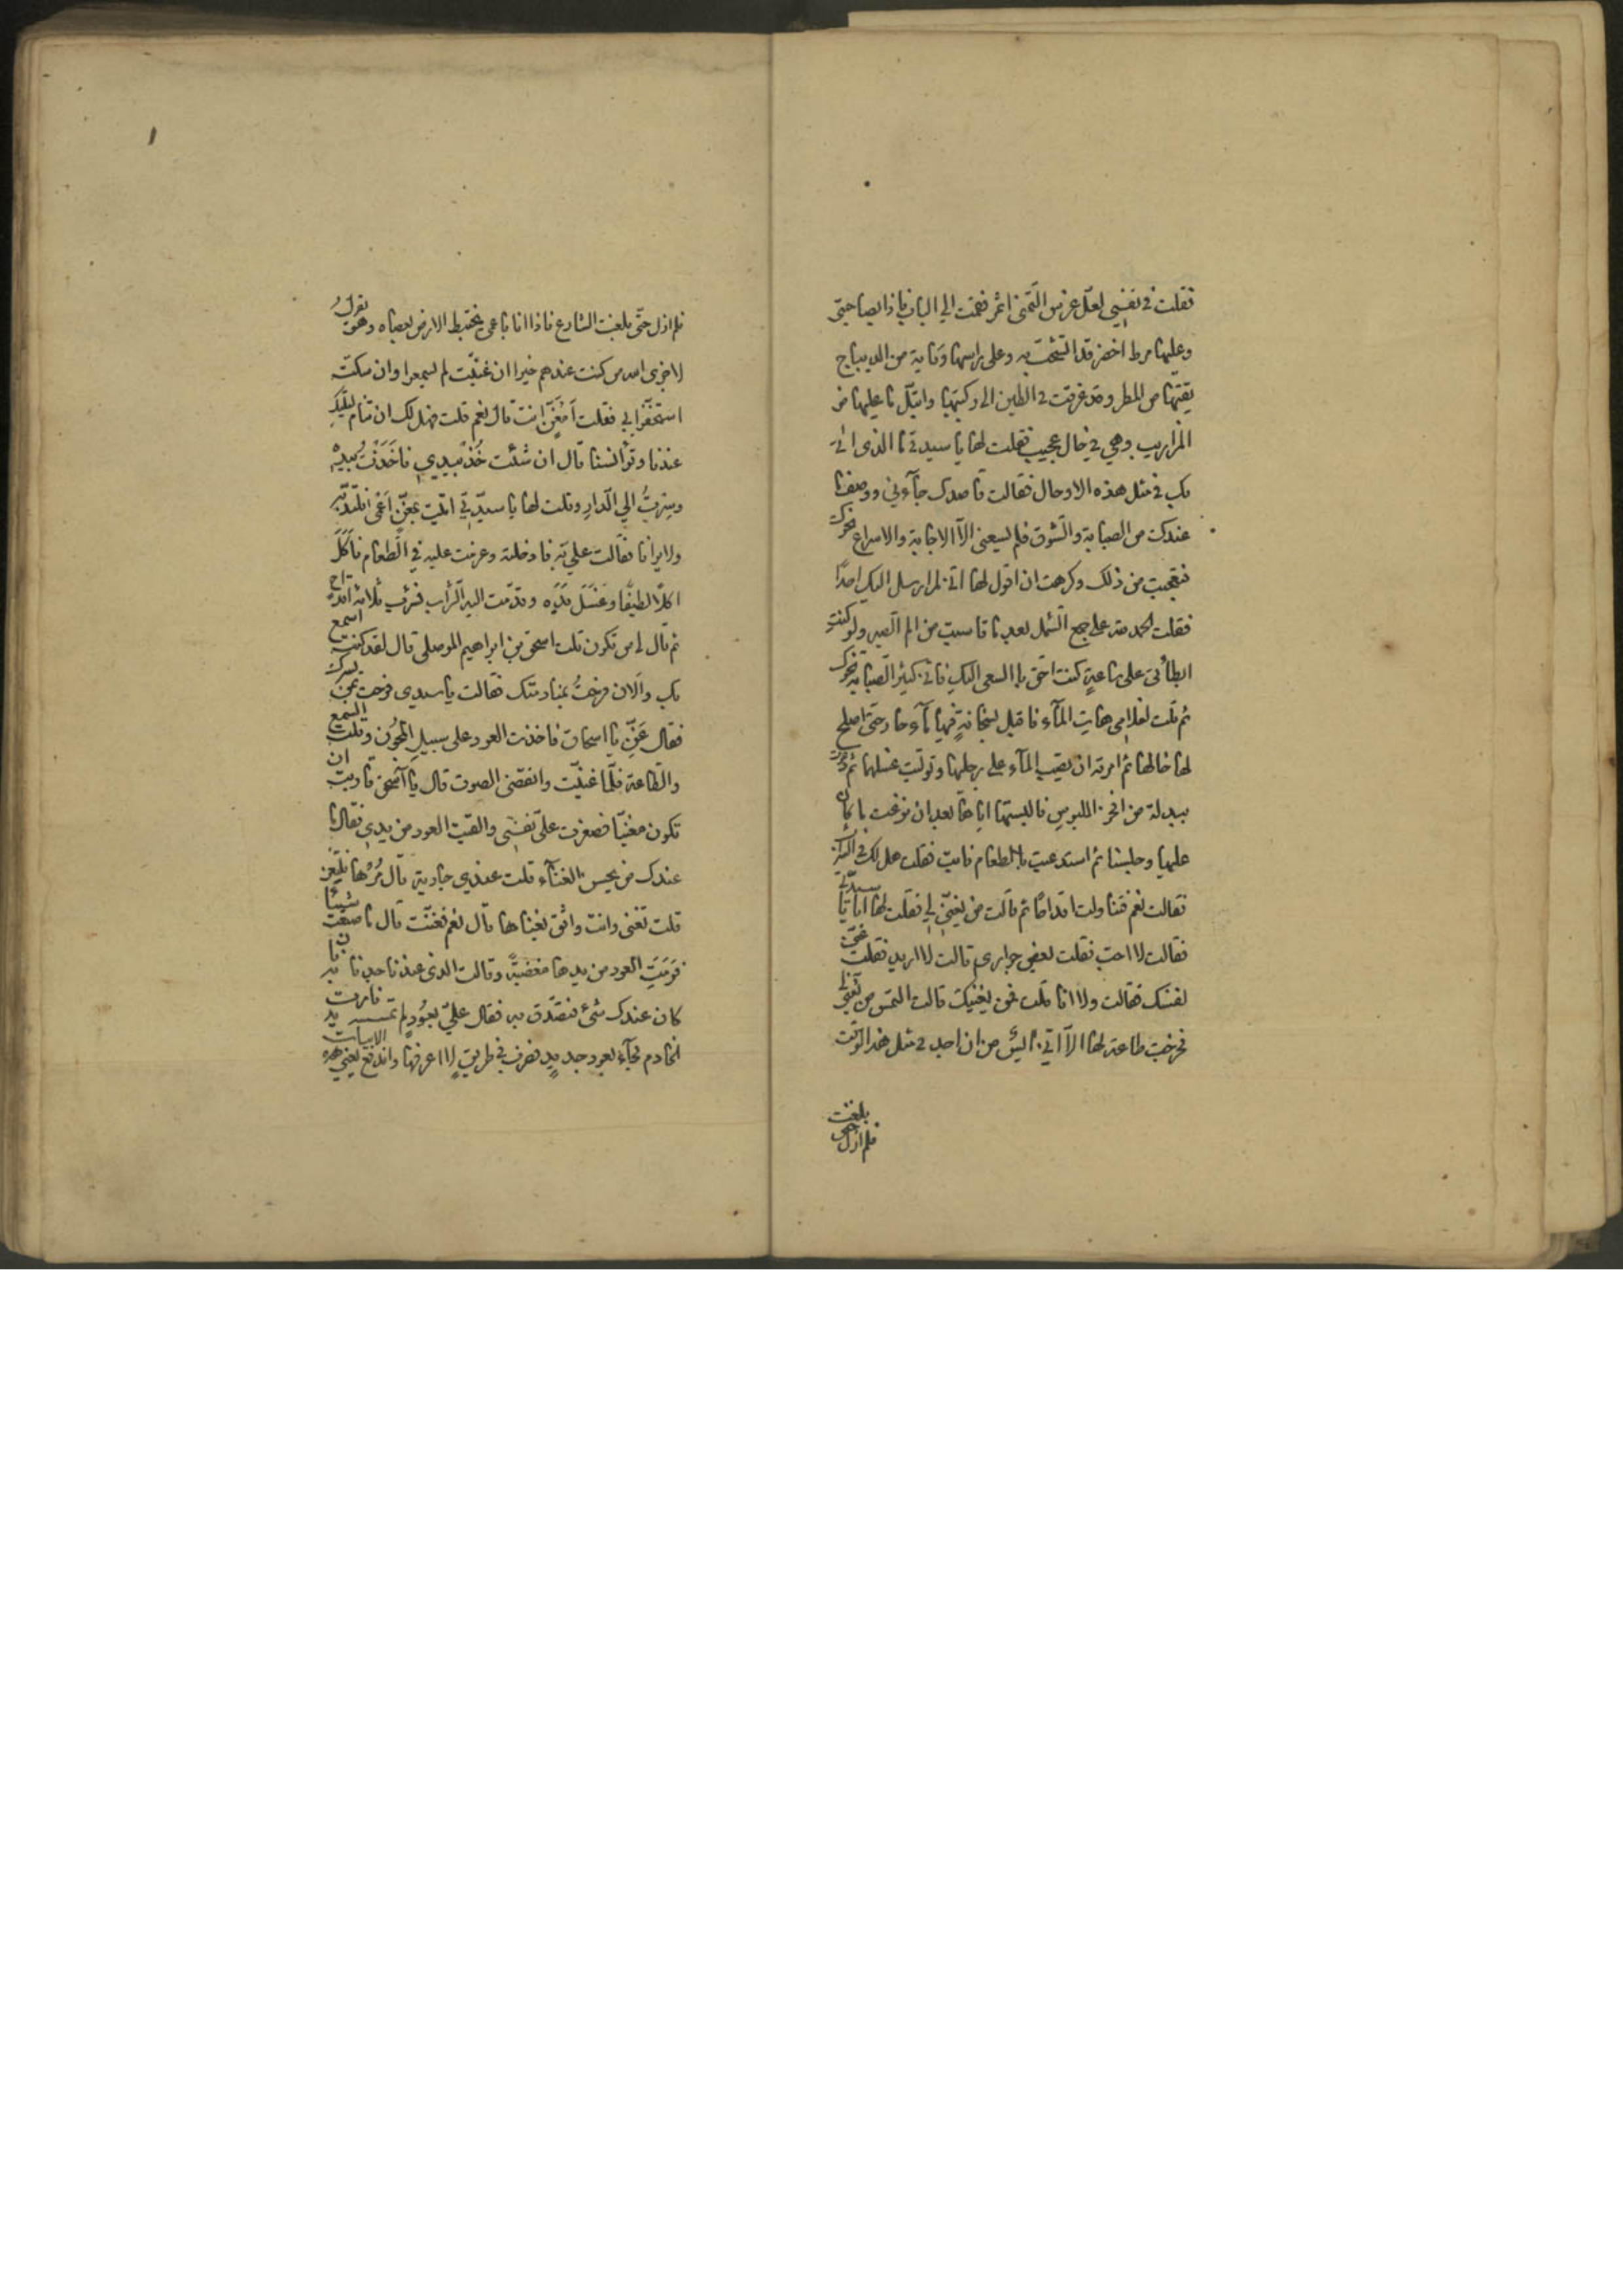 فقلت في نفسي لعل غرس التمني اثمر فقمت الي الباب فاذا بصاحبتي
وعليها مرط اخضر قد اتشحت به وعلى راسها وقاية من الديباج
يقتها من المطر وقد غرقت في الطين الى ركبتيها وابتل ما عليها من
المزاريب وهي في حال عجيب فقلت لها يا سيدتي ما الذي اتى
بك في مثل هذه الاوحال فقالت قاصدك جآءني ووصف ما
عندك من الصبابة والشوق فلم يسعني الا الاجابة والاسراع نحوك
فتعجبت من ذلك وكرهت ان اقول لها اني لم ارسل اليك احدًا
فقلت الحمد لله على جمع الشمل بعد ما قاسيت من الم الصبر ولو كنت
ابطأتي على ساعةٍ كنت احق بالسعى اليك فاني كثير الصبابة نحوك
ثم قلت لغلامي هات المآء فاقبل بسخانةٍ فيها مآء حار حتى اصلح
لها حالها ثم امرته ان يصب المآء على رجليها وتوليت غسلها ثم دعوت
ببدلة من افخر الملبوس فالبستها اياها بعد ان نزعت ما كان
عليها وجلسنا ثم استدعيت بالطعام فابت فقلت هل لك في الشراب
فقالت نعم فتناولت اقداحًا ثم قالت من يغني لي فقلت لها انا يا سيدتي
فقالت لا احب فقلت بعض جواري قالت لا اريد فقلت غني
لنفسك فقالت ولا انا قلت فمن يغنيك قالت التمس من يغني لي
فخرجت طاعة لها الا اني آيس من ان اجد في مثل هذا الوقت
فلم ازل حتى بلغت
فلم ازل حتى بلغت الشارع فاذا انا باعمى يختبط الارض بعصاه وهو يقول
لا جزى الله من كنت عندهم خيرا ان غنيت لم يسمعوا وان سكت
استخفوا بي فقلت أمغنٍ انت قال نعم قلت فهل لك ان تتم ليلتك
عندنا وتؤانسنا قال ان شئت خذ بيدي فاخذت بيده
وسرت الي الدار وقلت لها يا سيدتي اتيت بمغنٍ اعمى نلتذ به
ولا يرانا فقالت علي به فادخلته وعزمت عليه في الطعام فاكل
اكلا لطيفًا وغسل يديه وقدمت اليه الشراب فشرب ثلاثة اقداح
ثم قال لي من تكون قلت اسحق بن ابراهيم الموصلي قال لقد كنت اسمع
بك والان فرحت بمنادمتك فقالت يا سيدي فرحت بمن يسرك
فقال غن يا اسحاق فاخذت العود على سبيل المجون وقلت السمع
والطاعة فلما غنيت وانقضى الصوت قال يا اسحق قاربت ان
تكون مغنيًا فصغرت علي نفسي والقيت العود من يدي فقال ما
عندك من يحسن الغنآء قلت عندي جارية قال مرها فلتغن
قلت تغني وانت واثق بغناها قال نعم فغنت قال ما صنعت شيئًا
فرمت العود من يدها مغضبةً وقالت الذي عندنا جدنا به فان
كان عندك شئ فتصدق به فقال علي بعودٍ لم تمسسه يد فامرت
الخادم فجآء بعود جديدٍ فضرب في طريقٍ لا اعرفها واندفع يغني هذه الابيات